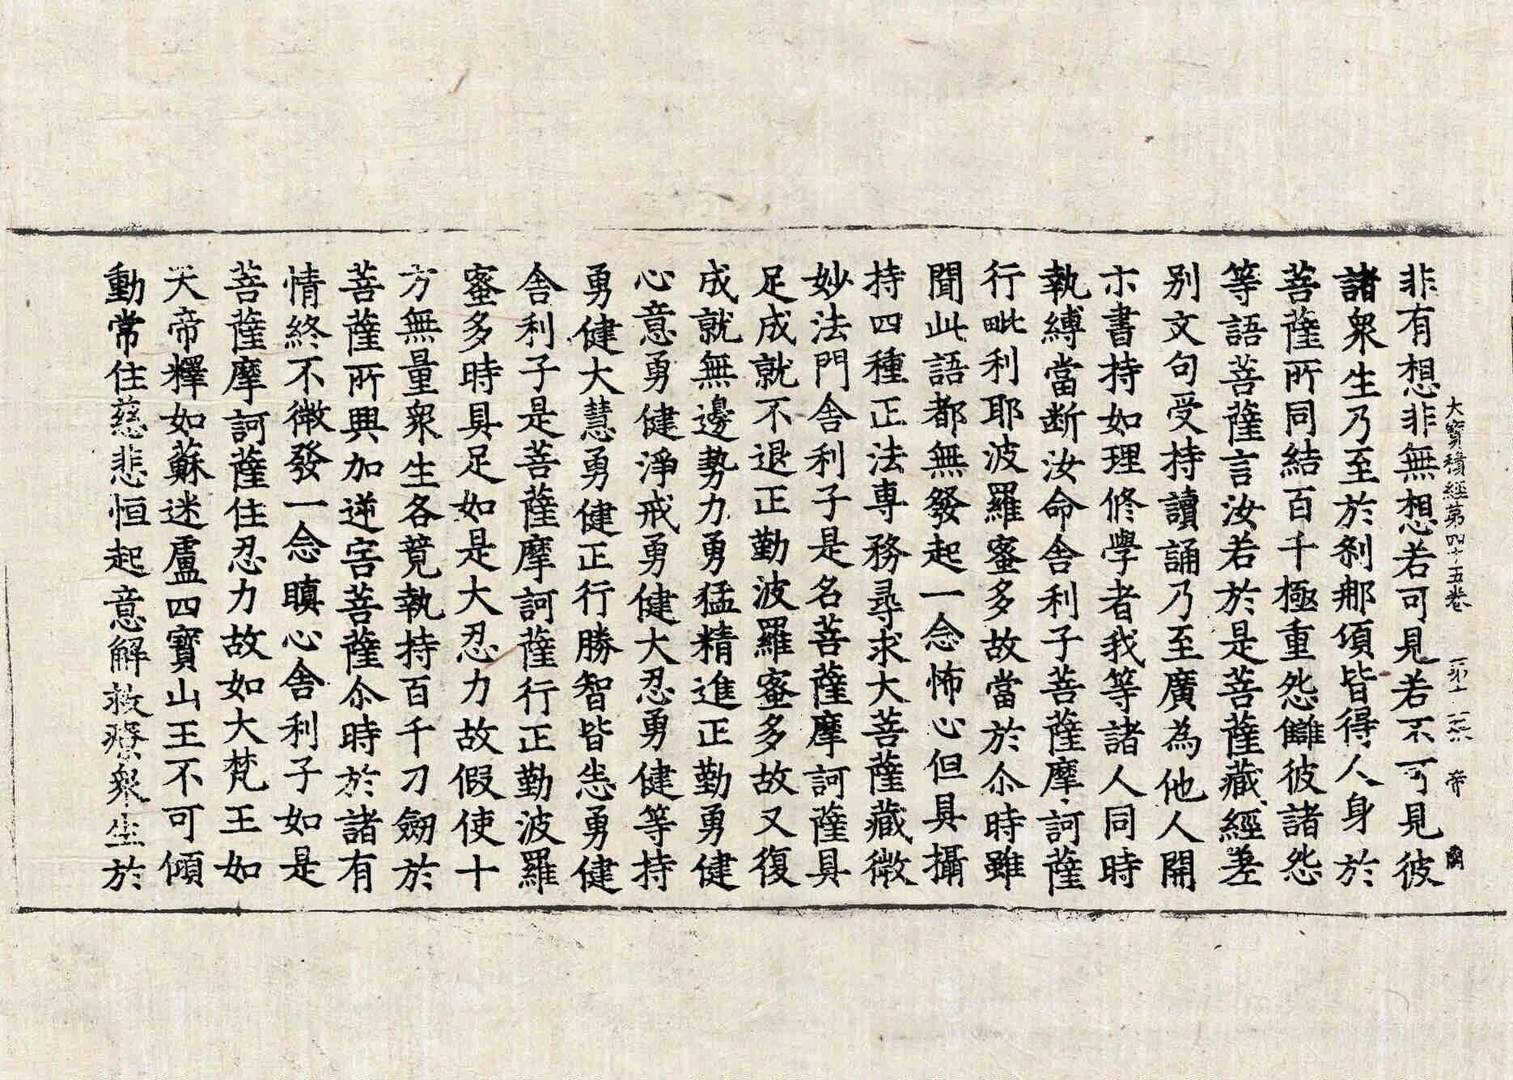 大寶積經第四十五卷 第十 帝
非有想非無想若可見若不可見彼
諸衆生乃至於刹那頃皆得人身於
菩薩所同結百千極重怨讎彼諸怨
等語菩薩言汝若於是菩薩藏經差
別文句受持讀誦乃至廣為他人開
示書持如理修學者我等諸人同時
執縛當断汝命舎利子菩薩摩訶薩
行毗利耶波羅蜜多故當於尒時雖
聞此語都無發起一念怖心但具攝
持四種正法専務尋求大菩薩藏微
妙法門舎利子是名菩薩摩訶薩具
足成就不退正勤波羅蜜多故又復
成就無邊勢力勇猛精進正勤勇健
心意勇健淨戒勇健大忍勇健等持
勇健大慧勇健正行勝智皆悉勇健
舎利子是菩薩摩訶薩行正勤波羅
蜜多時具足如是大忍力故假使十
方無量衆生各競執持百千刀劒於
菩薩所興加逆害菩薩尒時於諸有
情終不微發一念瞋心舎利子如是
菩薩摩訶薩住忍力故如大梵王如
天帝釋如蘇迷盧四寶山王不可傾
動常住慈悲恒起意解救療衆生於